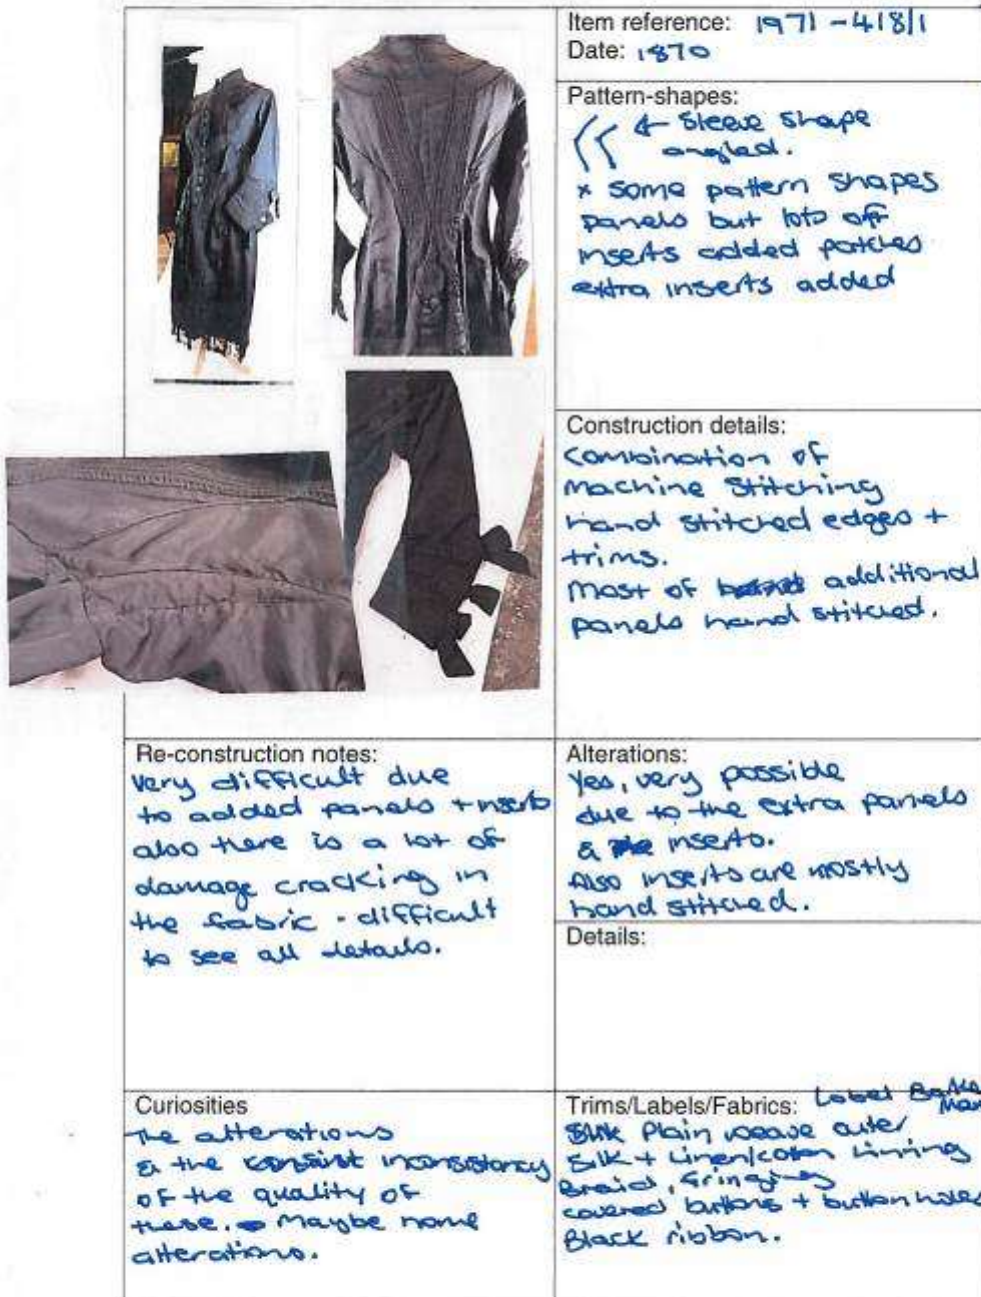 Item reference: 1971-418/1
Date: 1870
Pattern-shapes:
← Sleeve shape
angled.
* some pattern shapes
panels but lots off
inserts added patches
extra inserts added
Construction details:
Combination of
Machine Stitching
hand stitched edges +
trims.
Most of additional
panels hand stitched.
Re-construction notes:
Very difficult due
to added panels + inserts
also there is a lot of
damage cracking in
the fabric - difficult
to see all details.
Alterations:
Yes, very possible
due to the extra panels
& inserts.
Also inserts are mostly
hand stitched.
Details:
Curiosities
The alterations
& the inconsistency
of the quality of
these. Maybe home
alterations.
Trims/Labels/Fabrics: Label
Silk Plain weave outer
Silk + Linen/cotton linning
Braid, fringing
covered buttons + button holes
Black ribbon.